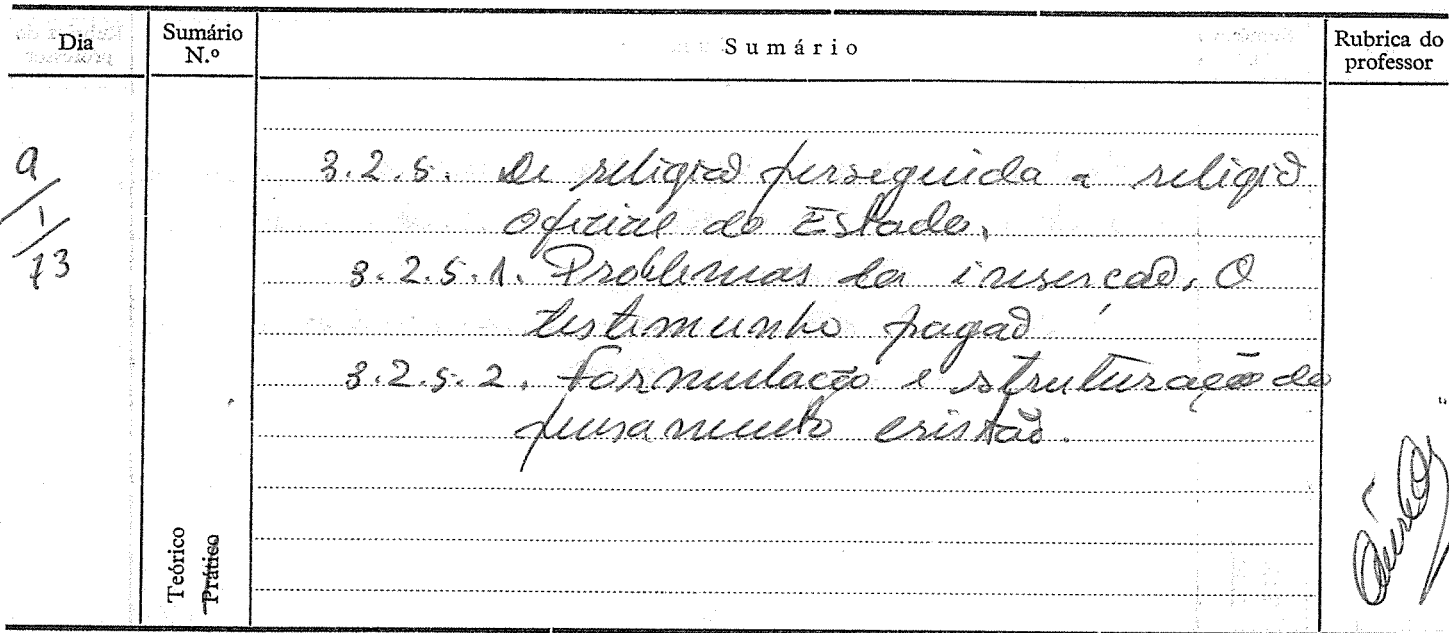 Dia Sumário N.º Sumário Rubrica do professor
9/1/73
3.2.5. De religião perseguida a religião
oficial do Estado.
3.2.5.1. Problemas da inserção. O
testemunho pagão
3.2.5.2. Formulação e struturação do
pensamento cristão.
Teórico
Prático